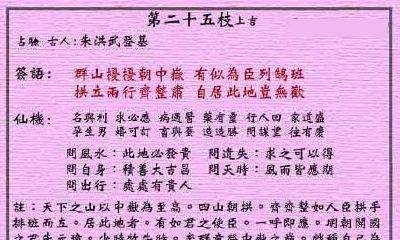 第二十五枝上吉
占驗 古人:朱洪武登基
簽語: 群山擾擾朝中嶽 有似為臣列鵠班
拱立兩行齊整肅 自居此地豈無歡
仙機: 名與利 求必應 病遇醫 藥有靈 行人回 家道盛
孕生男 婚可訂 畜與蚕 造造勝 問謀望 往有慶
問風水:此地必發貴 問遺失:求之可以得
問自身:積善大吉昌 問天時:風雨皆應期
問出行:處處有貴人
註:天下之山以中嶽為至高。四山朝拱。齊齊整如人臣拱手
排班而立。居此地者。有如君之使臣。一呼即應。明朝開國